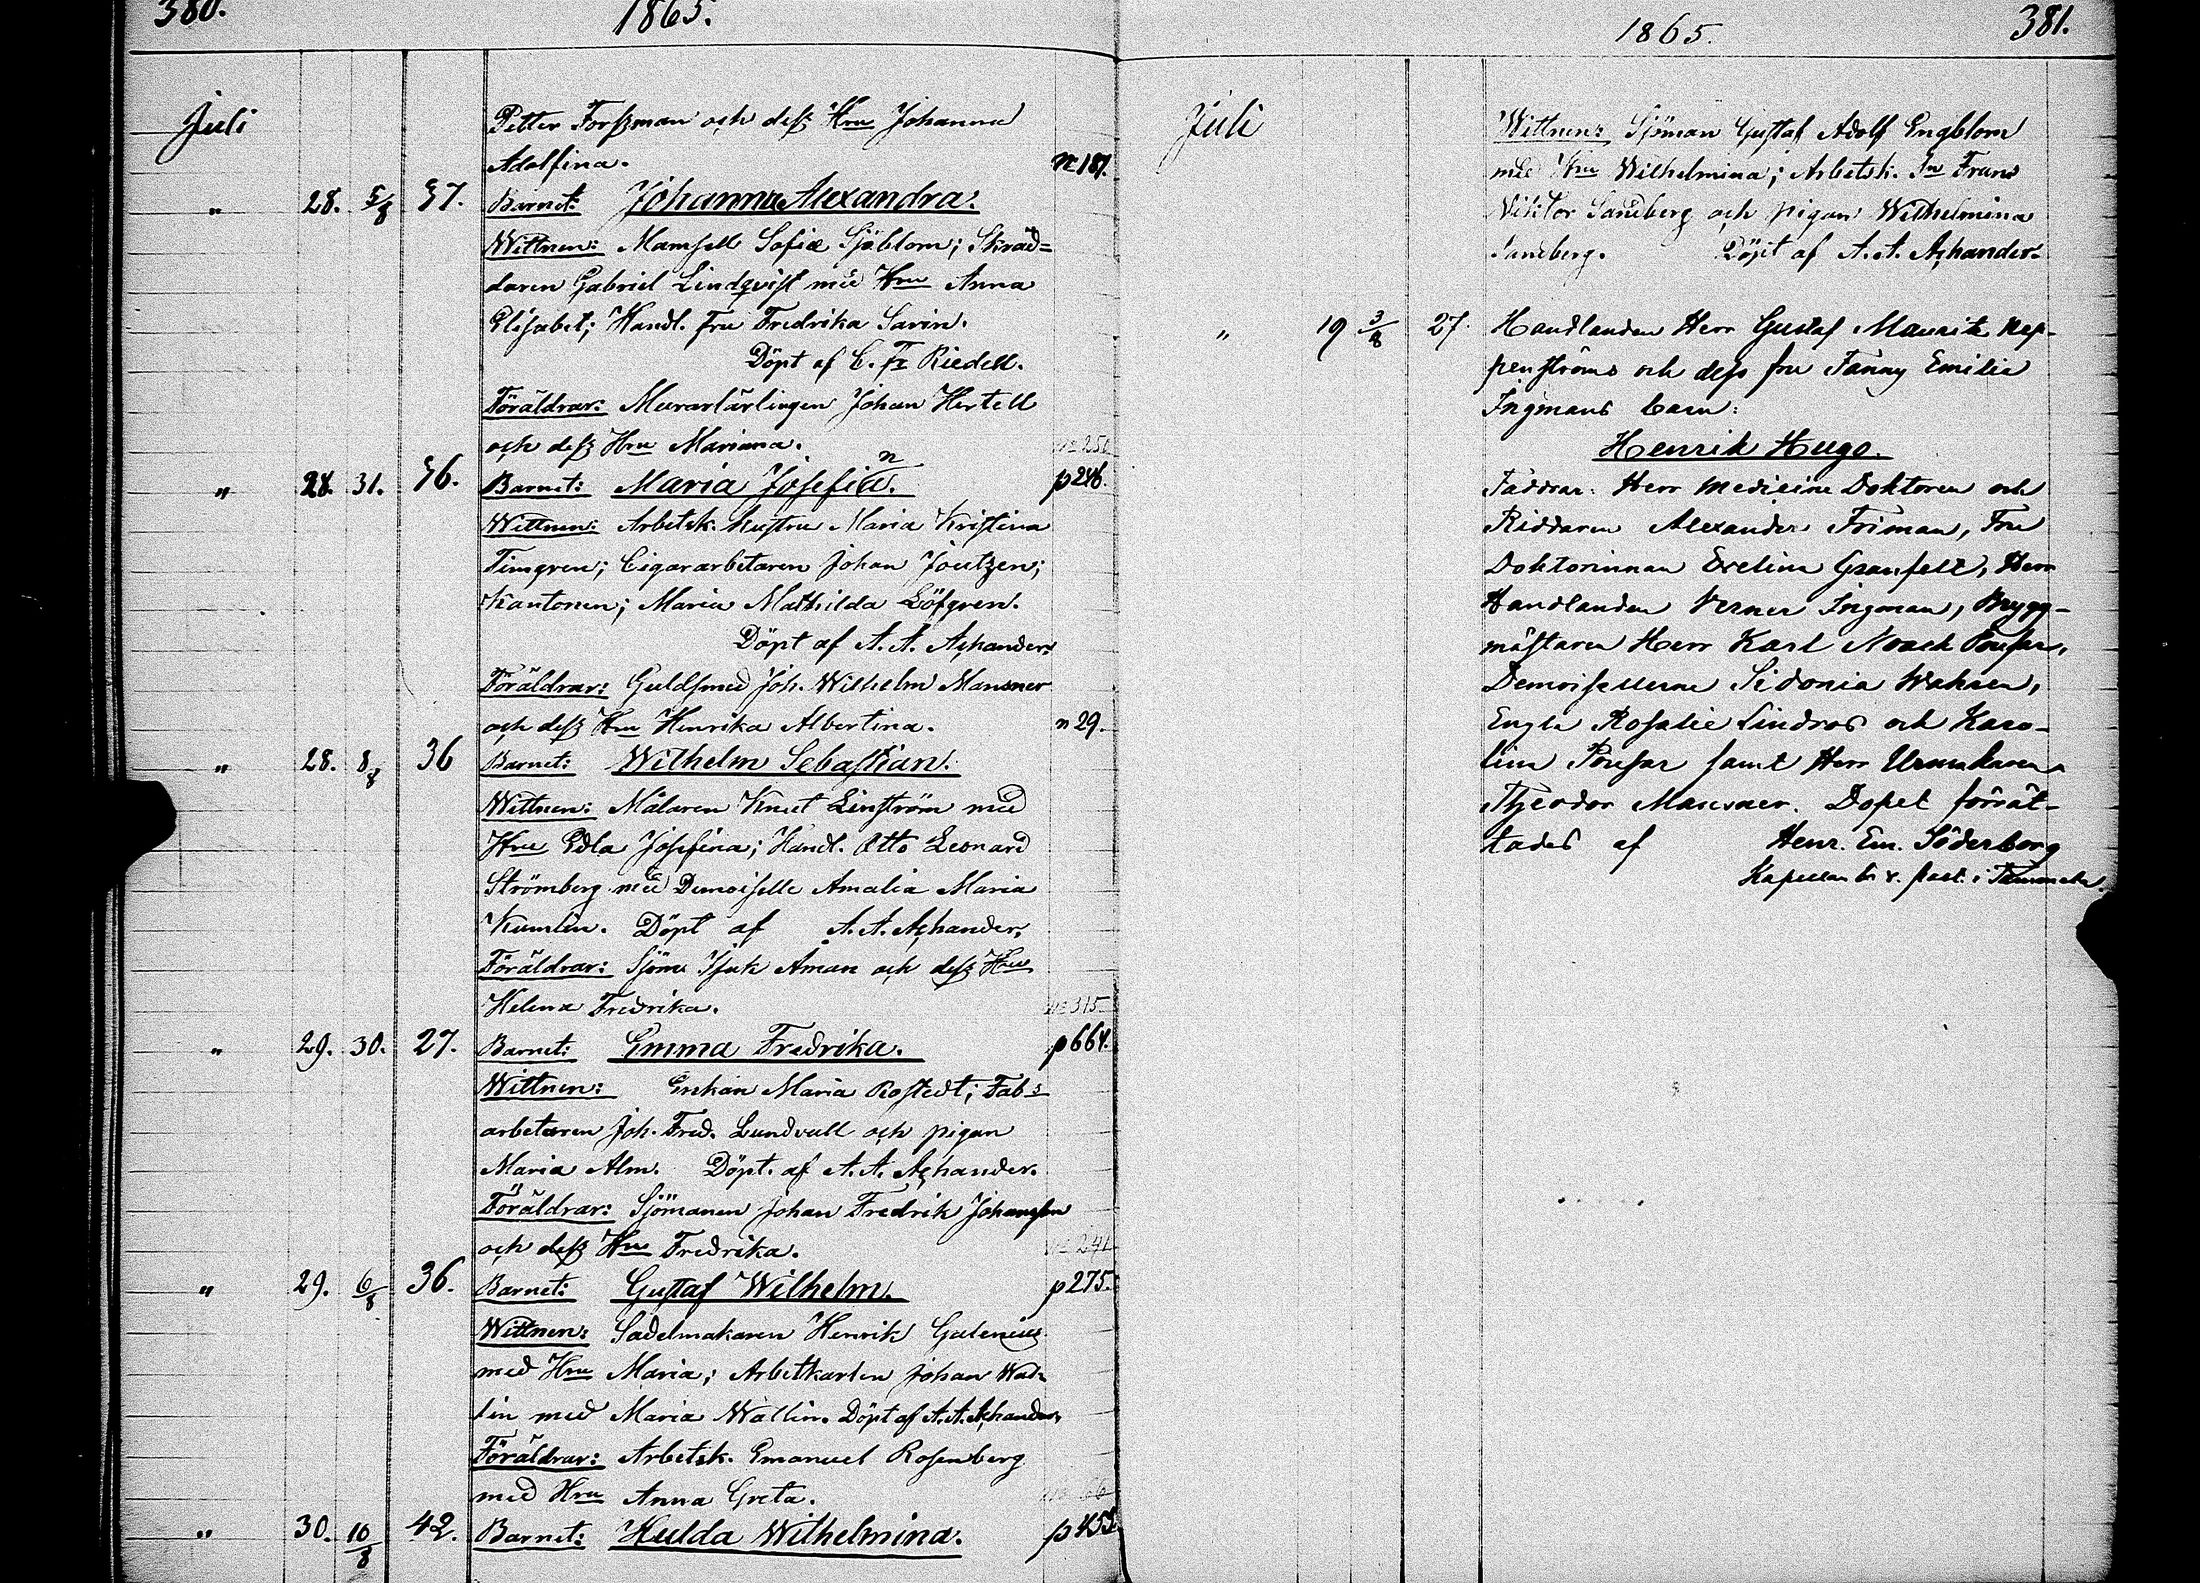 380. 1865.
Juli
Petter Forszman och desz Hru Johanna
Adolfina. n 181.
" 28. 5/8 37. Barnet: Johanna Alexandra.
Wittnen: Mamsell Sofia Sjöblom; Skräd=
daren Gabriel Lindqvist med Hru Anna
Elisabet; Handl. fru Fredrika Sarin.
Döpt af C. Fr Riedell.
Föräldrar: Murarlärlingen Johan Hertell
och desz Hru Mariana. 250
" 28. 31. 36. Barnet: Maria Josefina. p 246.
Wittnen: Arbetsk. hustru Maria Kristina
Timgren; Cigararbetaren Johan Joutzen;
Maria Mathilda Löfgren.
Döpt af A. A. Aschander.
Föräldrar: Guldsmed Joh. Wilhelm Mansner
och desz Hru Henrika Albertina. n 29.
" 28. 8/8 36 Barnet: Wilhelm Sebastian.
Wittnen: Målaren Knut Linström med
Hru Edla Josefina; Handl. Otto Leonard
Strömberg med Demoiselle Amalia Maria
Kumlin. Döpt af A. A. Aschander.
Föräldrar: Sjöm. Isak Åman och desz Hru
Helena Fredrika. 315
" 29. 30. 27. Barnet: Emma Fredrika. p 664.
Wittnen: Enkan Maria Rostedt; Fabs
arbetaren Joh. Fred. Lundvall och pigan
Maria Alm. Döpt. af A. A. Aschander.
Föräldrar: Sjömanen Johan Fredrik Johansson
och desz Hru Fredrika. 241
" 29. 6/8 36. Barnet: Gustaf Wilhelm. p 275.
Wittnen: Sadelmakaren Henrik Galenius
med Hru Maria; Arbetkarlen Johan Wal=
lin med Maria Wallin. Döpt af A. A. Aschander.
Föräldrar: Arbetsk. Emanuel Rosenberg
med Hru Anna Greta. 66
" 30. 10/8 42. Barnet: Hulda Wilhelmina. p 455
1865. 381.
Juli
Wittnen: Sjöman Gustaf Adolf Engblom
med Hru Wilhelmina; Arbetsk. Sn Frans
Viktor Sandberg och pigan Wilhelmina
Sandberg. Döpt af A. A. Aschander.
" 19 3/8 27. Handlanden Herr Gustaf Mauritz Rep-
penströms och dess fru Fanny Emilia
Ingmans barn:
Henrik Hugo.
Faddrar: Herr Medicine Doktoren och
Riddaren Alexander Friman, Fru
Doktorinnan Evelina Granfelt, Herr
Handlanden Verner Ingman, Brygg-
mästaren Herr Karl Noack
Demoisellerne Sidonia Wahren,
Engla Rosalie Lindros och Karo-
lina samt Herr Urmakaren
Theodor Mansner. Dopet förrät-
tades af Henr. Em. Söderborg
Kapellan